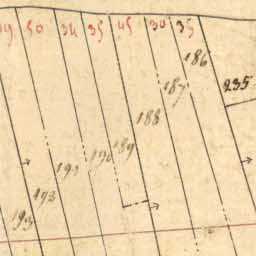 50
34
35
45
30
35
186
235
187
188
189
190
191
193